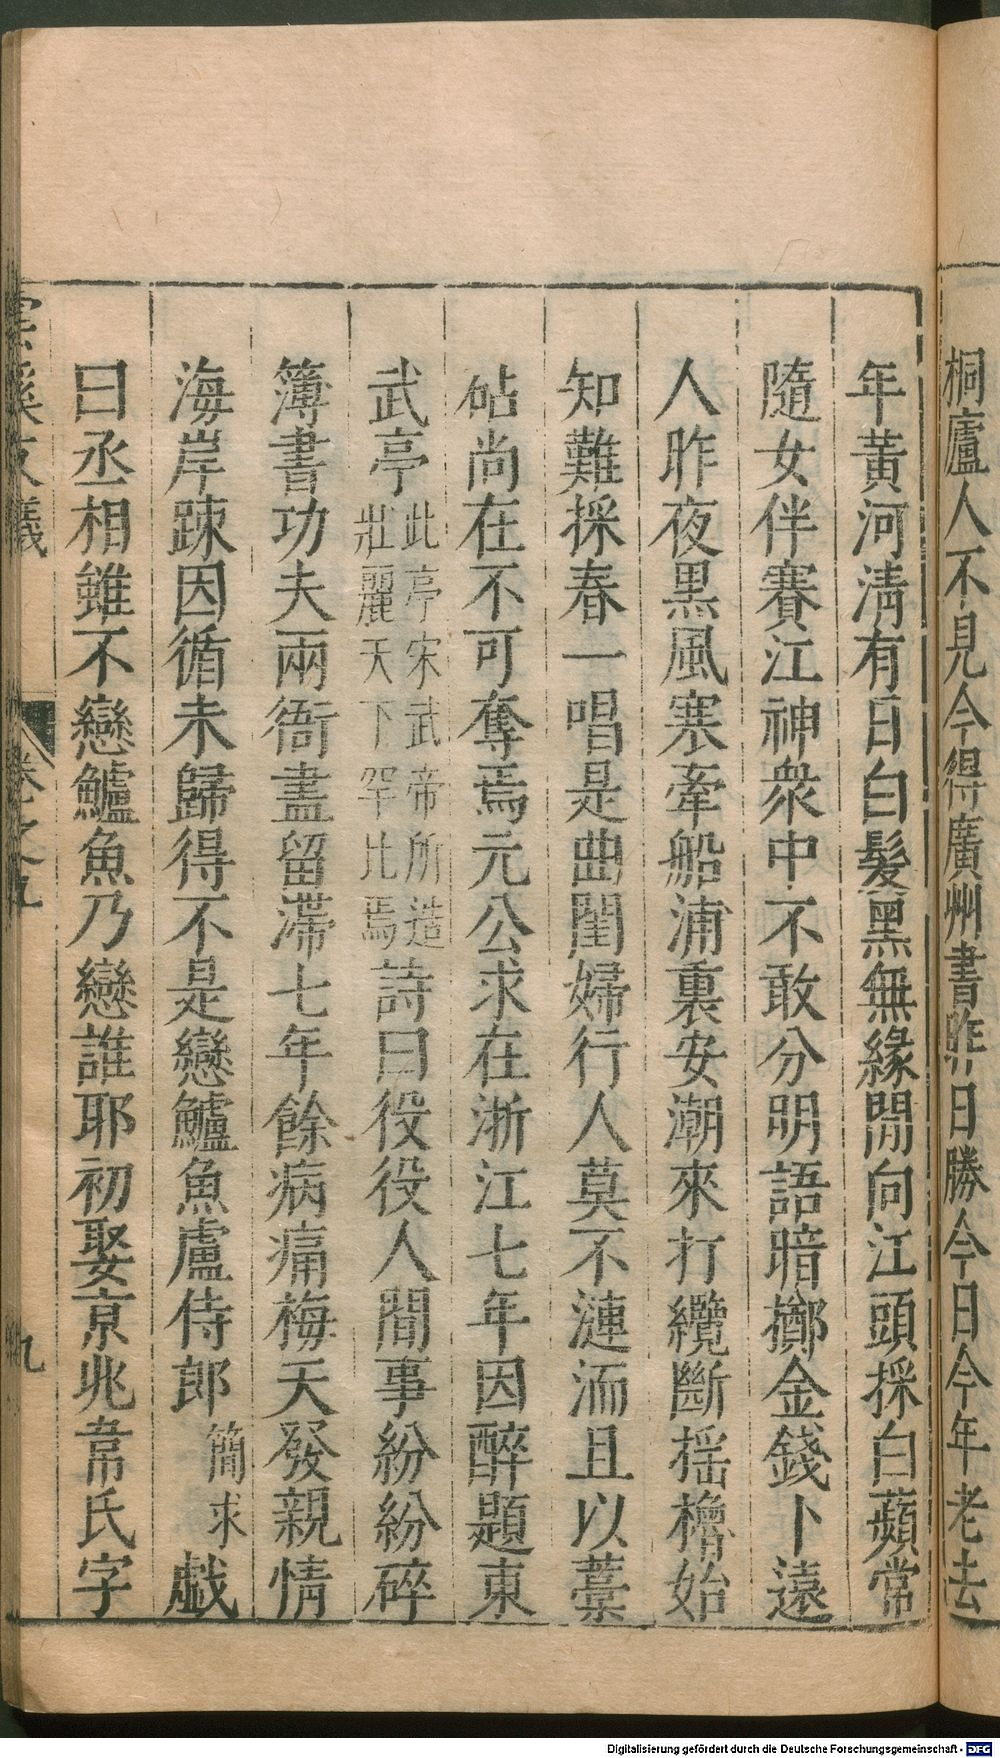 桐廬人不見今得廣州書昨日勝今日今年老去
年黃河清有日白髮黑無緣閒向江頭採白蘋常
隨女伴賽江神衆中不敢分明語暗擲金錢卜遠
人昨夜黑風寒牽船浦裏安潮來打纜斷搖櫓始
知難採春一唱是曲閨婦行人莫不漣洏且以藁
砧尚在不可奪焉元公求在浙江七年因醉題東
武亭此亭宋武帝所造壯麗天下罕比焉詩曰役役人間事紛紛碎
簿書功夫兩衙盡留滯七年餘病痛梅天發親情
海岸踈因循未歸得不是戀鱸魚盧侍郎簡求戱
曰丞相雖不戀鱸魚乃戀誰耶初娶京兆韋氏字
雲溪友議
卷之九
九
Digitalisierung gefördert durch die Deutsche Forschungsgemeinschaft - DFG